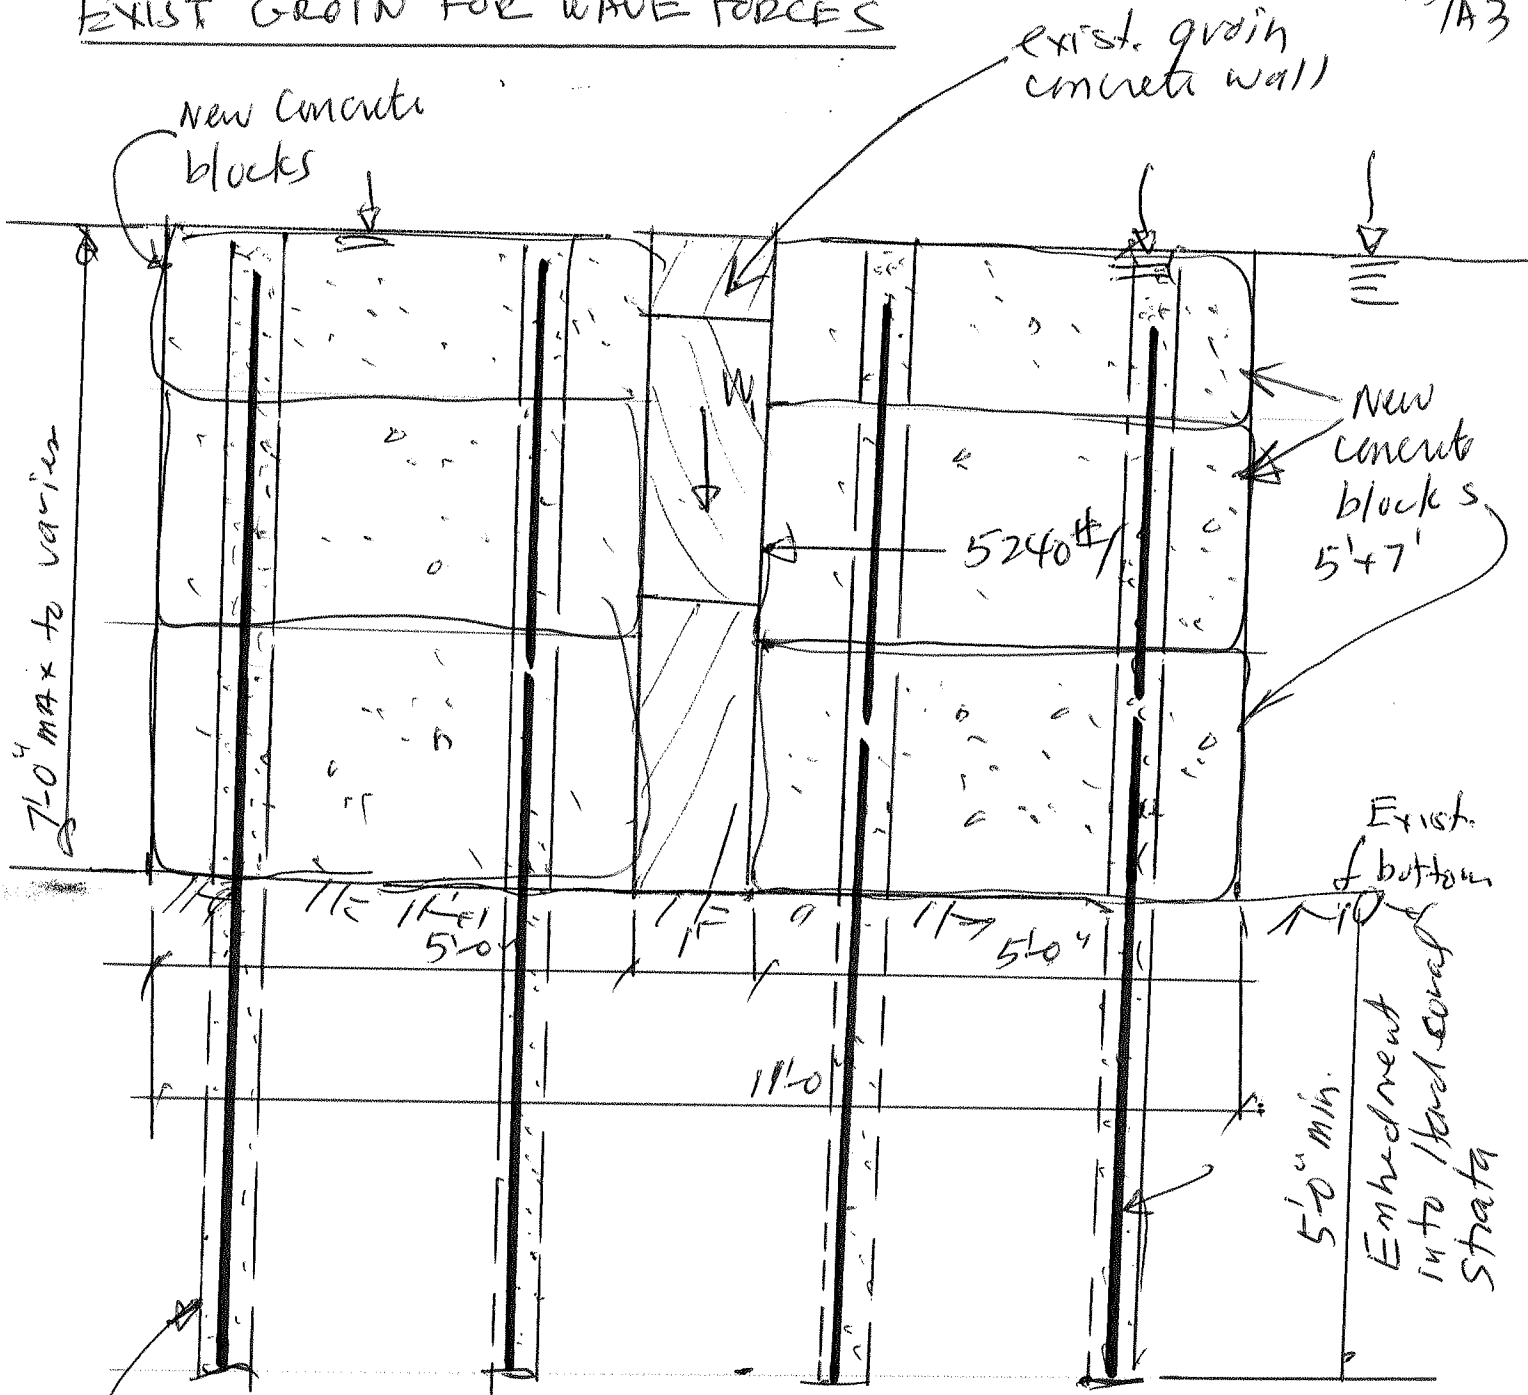 EXIST GROIN FOR WAVE FORCES
/A3
exist. groin
concrete wall
New Concrete
blocks
7'-0" max to varies
W
5240#/
New
concrete
blocks
5'x7'
Exist.
bottom
5'-0"
1'
5'-0"
11'-0
5'-0" min.
Embedment
into Hard coral
Strata